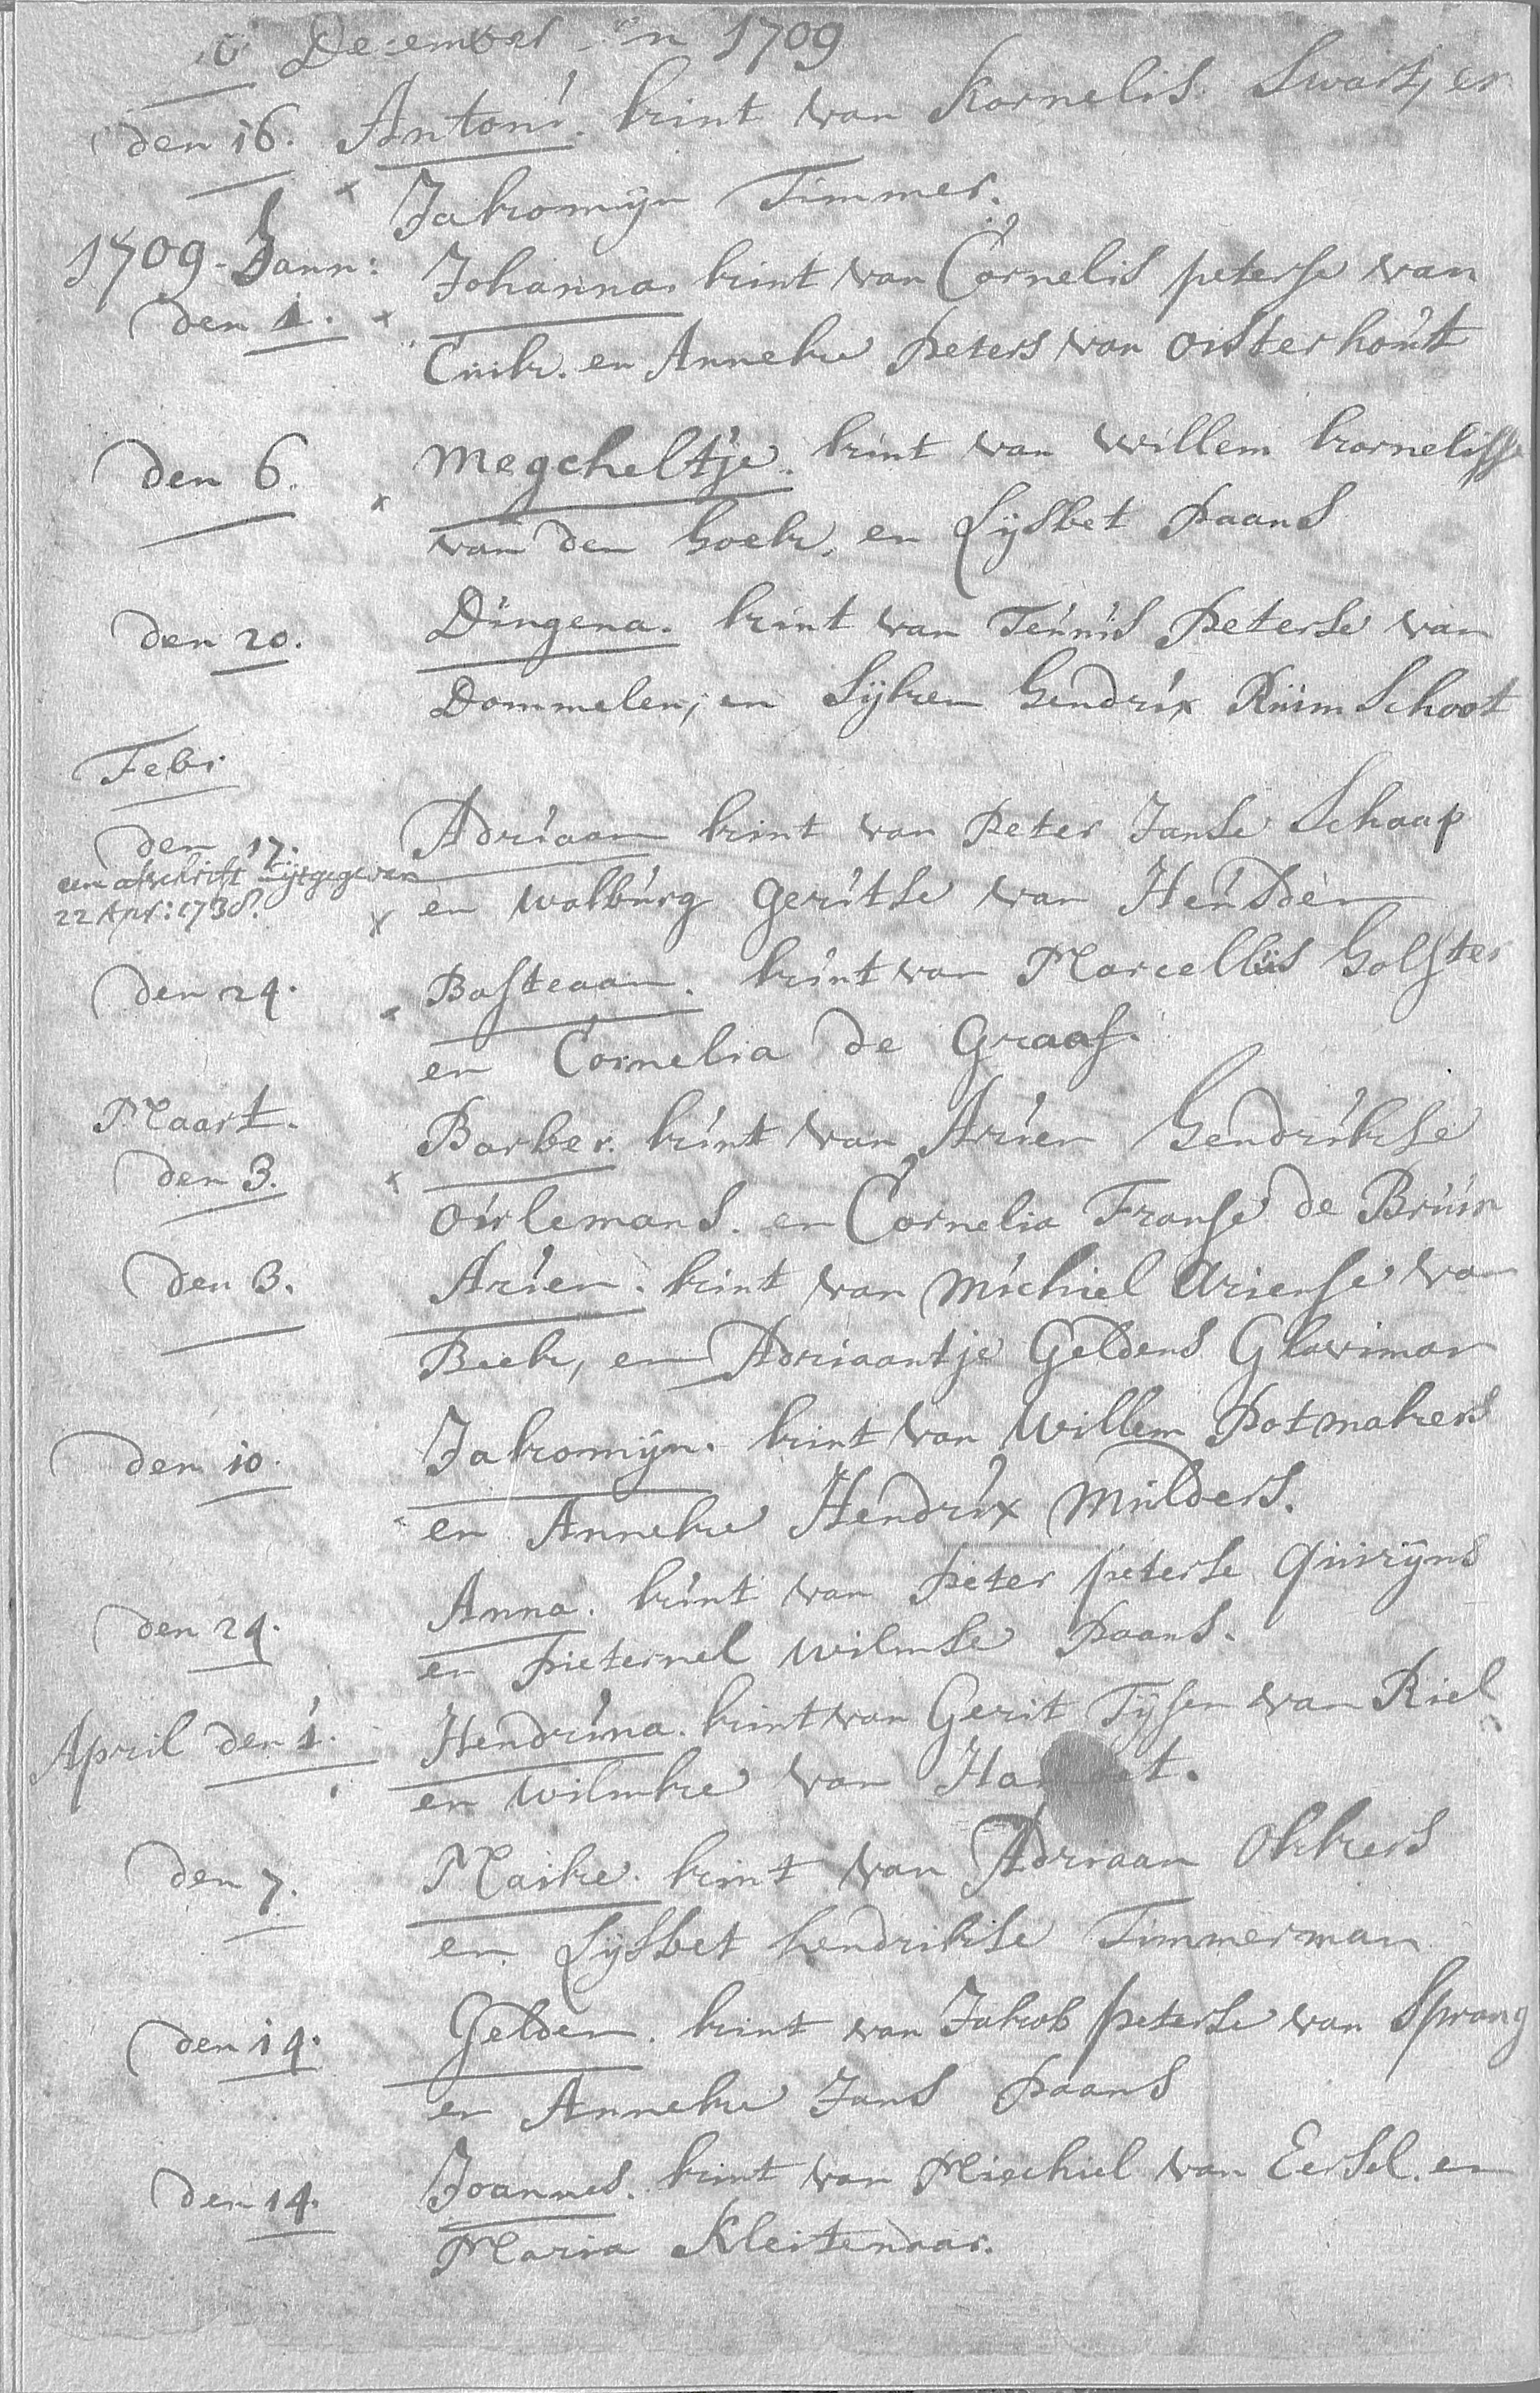 December in 1709
den 16. Antoni. kint van Kornelis Swart, en
Jakomijn Timmer.
1709 - Jann:
Johanna. kint van Cornelis peterse van
den 1.
Cuik. en Anneke peters van oisterhout
den 6. Megcheltje. kint van willem kornelisse
van den hoek. en Lijsbet paans
den 20. Dingena. kint van Teunis peterse van
Dommelen, en Sijken hendrix Ruimschoot
Febr.
den 17. Adriaan kint van peter Janse Schaap
een afschrift uijtgegeven
22 Apr: 1738.
en walburg gerutse van Heusden
den 24. Basteaan. kint van Marcellus holster
en Cornelia de Graaf.
Maart.
Barber. kint van Arien hendrikse
den 3.
oirlemans. en Cornelia Franse de Bruin
den 3. Arien. kint van Michiel Ariense va
Beek, en Adriaantje Geldens Glavimar
den 10. Jakomijn. kint van Willem potmakers
en Anneke Hendrix Mulders.
den 24. Anna. kint van peter peterse Quirijns
en pieternel wilmse paans.
April den 1. Hendrina. kint van Gerit Tijsen van Riel
en wilmke van
den 7. Maike. kint van Adriaan okkers
en Lijsbet hendrikse Timmerman
den 14. Gelden. kint van Jakob peterse van Sprang
en Anneke Jans paans
den 14. Joannes. kint van Miechiel van Eersel. en
Maria Kleitendar.